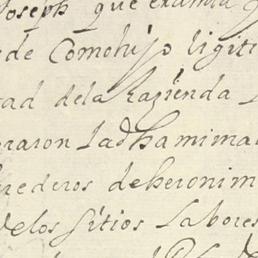 Joseph que
de Comohijo ligiti
tad dela hazienda
raron La dha mima
hrederos deheronim
delos sitios Labores